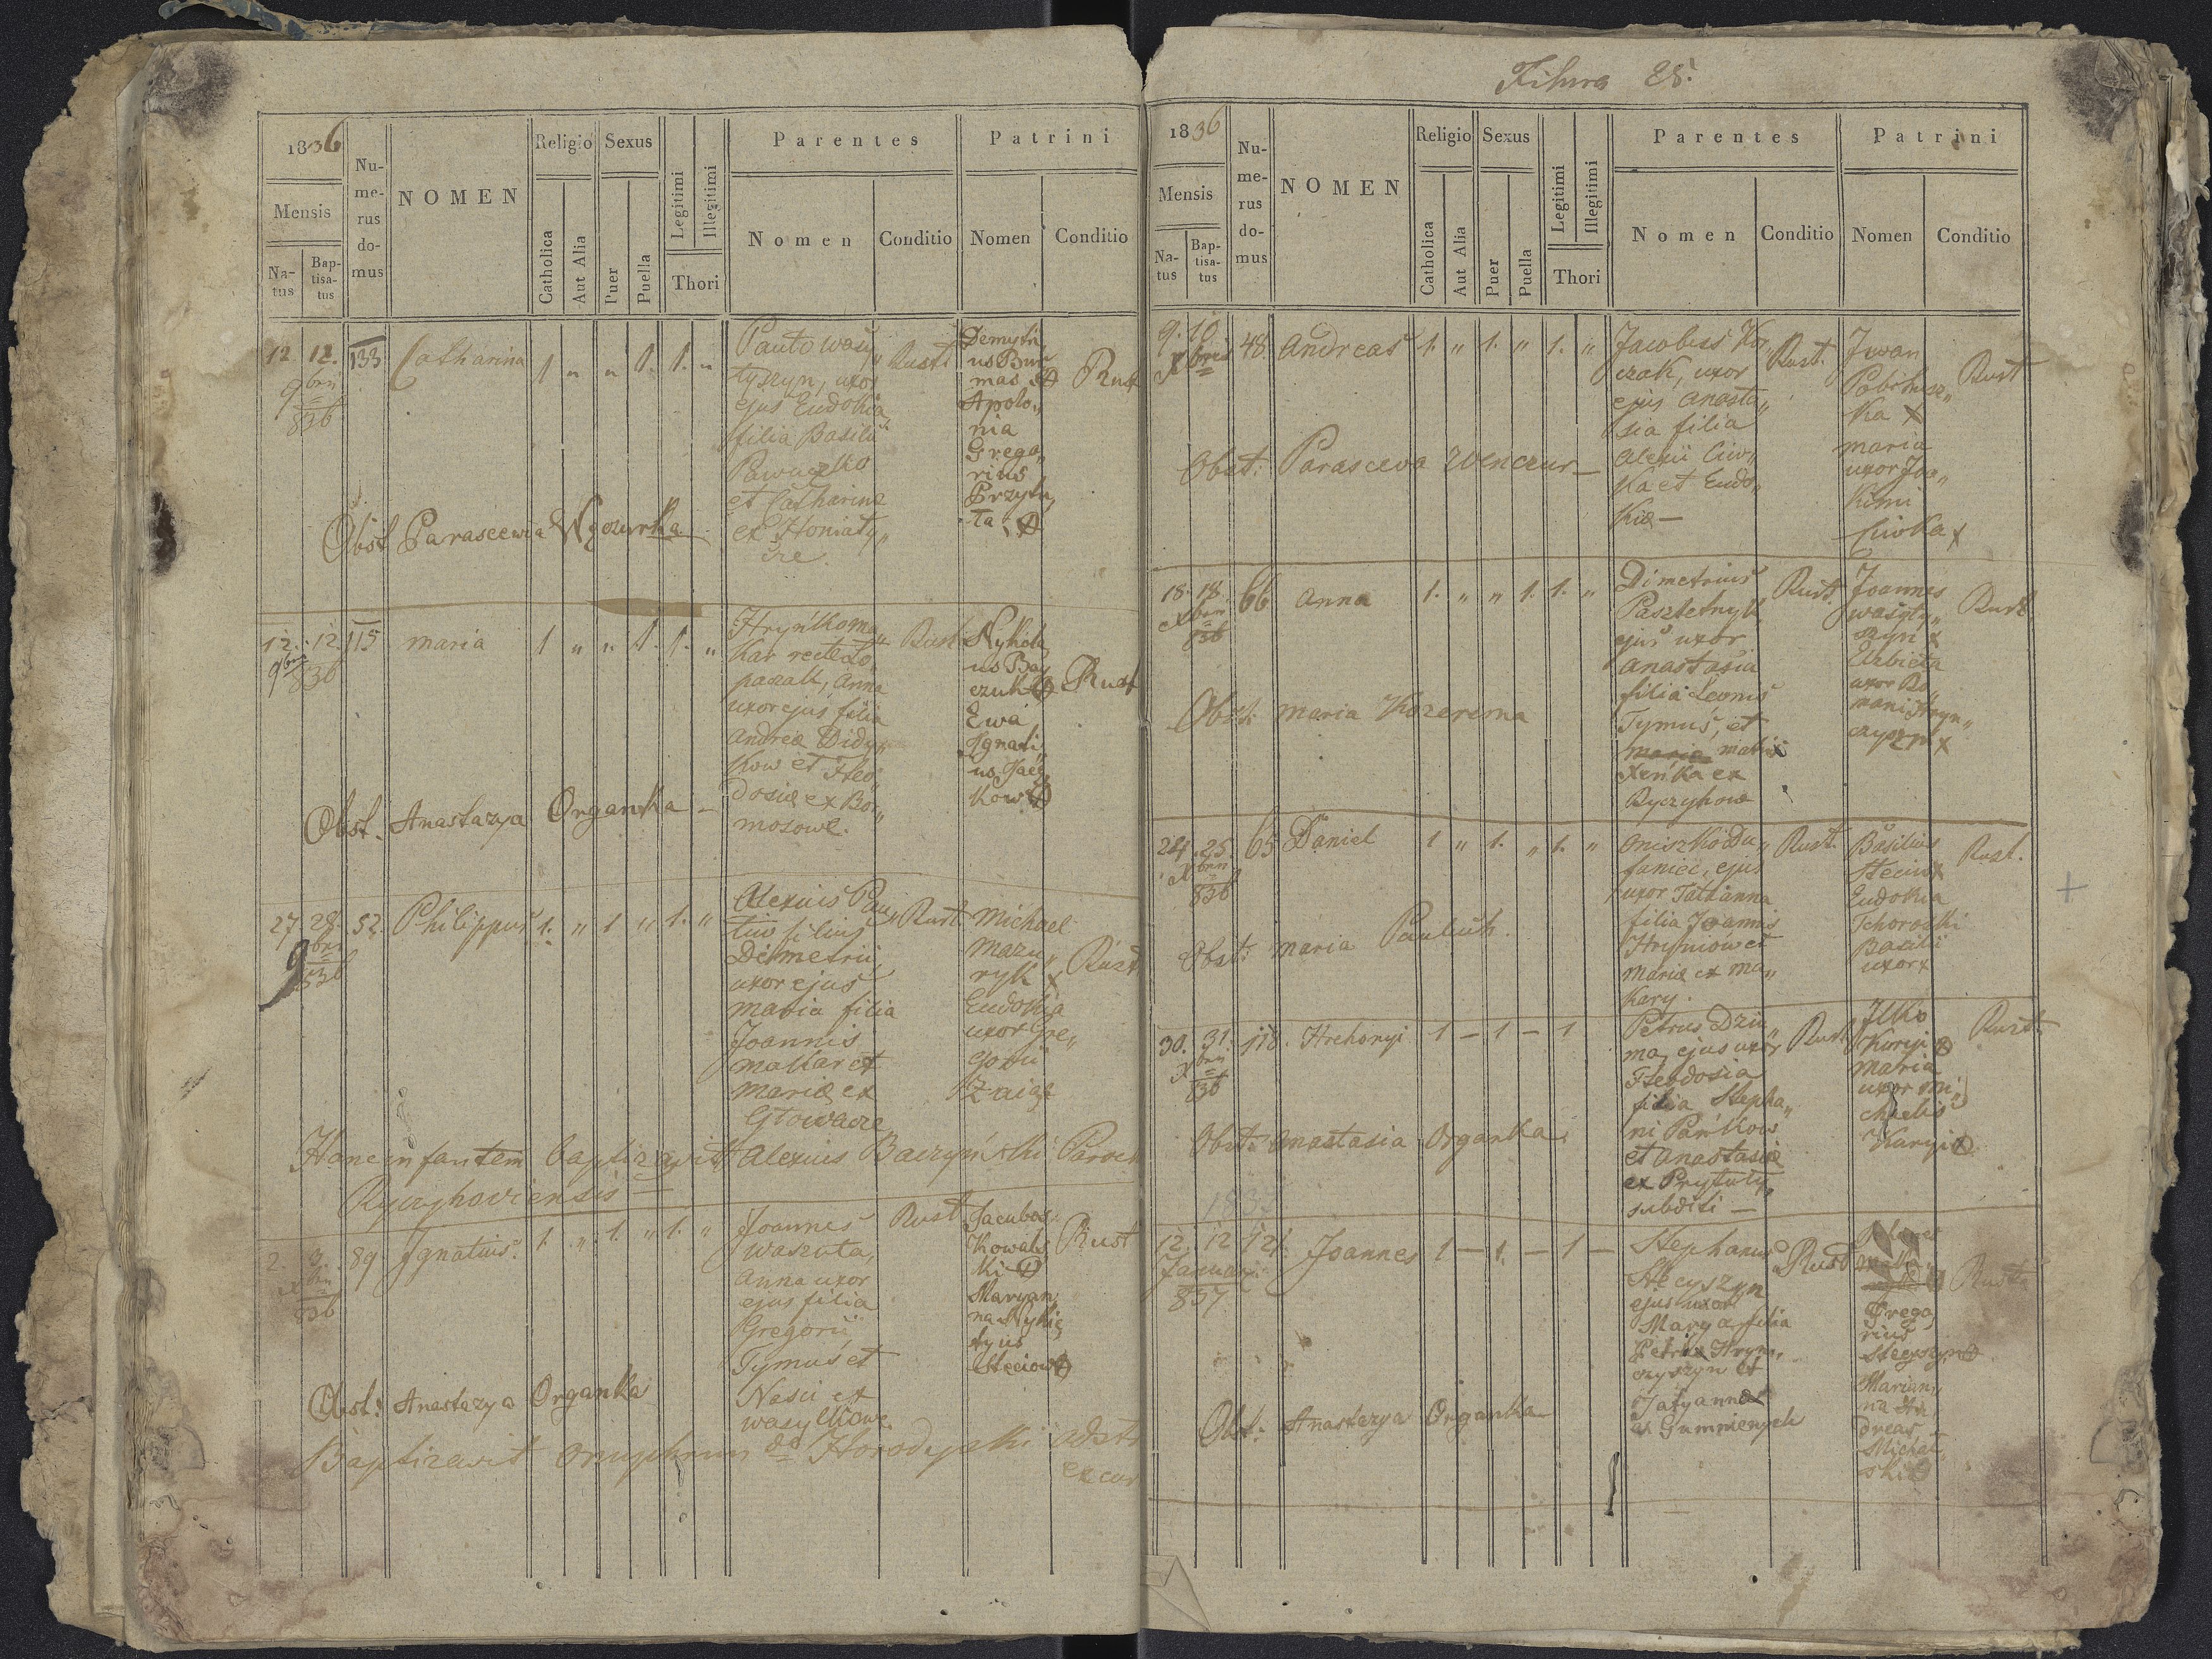 1836
Mensis
Na-
tus
Bap-
tisa-
tus
Nu-
me-
rus
do-
mus
NOMEN
Religio
Catholica
Aut Alia
Sexus
Puer
Puella
Legitimi
Illegitimi
Thori
Parentes
Nomen
Conditio
Patrini
Nomen
Conditio
12. 12. 133 Catharina 1 " " 1. 1. "
9bris
836
Pauto Wasy„
tyszyn, uxor
ejus Eudokia
filia Basilii
et Catharinae
ex Honiaty„
cze.
Rust
Demytri
us Bur
mas
Apolo„
nia
Grego„
rius
Przytu„
ła
Rust
Obst. Parascewia
12. 12. 115 maria 1 " " 1. 1. "
9bris
836
Hryńko ma„
kar recte Ło„
paczak, Anna
uxor ejus filia
Andreae Didy„
kow et Theo„
dosiae ex Bo„
mosowe.
Rust
Nykola
us Bay
czuk
Ewa
Ignati„
us
kow
Rust
Obst. Anastazya Organka
27 28. 52. Philippus 1. " 1 " 1. "
9bris
836
Alexius Pau„
tiw filius
Dimetrii,
uxor ejus
maria filia
Joannis
makar et
mariae ex
Głowacze
Rust
Michael
mazu„
ryk x
Eudokia
uxor Gre„
gorii
Zaiąc
Rust
Hanc infantem baptizavit Alexius Baczyński Paroch
Ryczyhoviensis
2. 3. 89. Ignatius. 1. " 1. " 1. "
Xbris
836
Joannes
Waszuta,
Anna uxor
ejus filia
Gregorii
Tymuś et
Nasci ex
wasylkowe
Rust
Jacubos
Kowals
ki
Maryan
na Nykie
Steciow
Rust
Obst: Anastazya Organka
Baptizavit Onuphrius de Horodyski adstr
excur
1836
Mensis
Na-
tus
Bap-
tisa-
tus
Nu-
me-
rus
do-
mus
NOMEN
Religio
Catholica
Aut Alia
Sexus
Puer
Puella
Legitimi
Illegitimi
Thori
Parentes
Nomen
Conditio
Patrini
Nomen
Conditio
9. 10 48. Andreas 1. " 1. " 1. "
Xbris
Jacobus Kor„
czak, uxor
ejus Anasta„
sia filia
Alexii Ciw„
ka et Eudo„
kiae
Rust.
Iwan
Pobihusz„
ka x
maria
uxor Joa„
kimi
Ciwka x
Rust
Obst: Parasceva
18. 18. 66 Anna 1. " " 1. 1. "
Xbris
836
Dimetrius
Pasztetnyk
ejus uxor
Anastasia
filia Leonis
Tymuś, et
matris
Xeńka ex
Ryczyhow
Rust.
Joannes
wasyty„
szyn x
Elzbieta
uxor Ro„
mani Hryn„
czyszyn x
Rust.
Obst. maria Kozerema
24. 25. 65 Daniel 1 " 1. " 1. "
Xbris
836
Oniszko Du„
faniec, ejus
uxor Tatianna
filia Joannis
Hryniow et
mariae ex ma„
kary.
Rust.
Basilius
Steciw x
Eudokia
Tchoroski
Basili
uxor x
Rust.
Obst: maria Pauluch.
30. 31. 118. Hrehoryi 1 – 1 – 1
Xbris
836
Petrus Dziu„
ma, ejus uxor
Theodosia
filia Stepha„
ni Pańkow
et Anastasiae
ex Prytuły„
subditi –
Rust
Ilko
Kuryi
maria
uxor mi„
chaelis
Karyi
Rust.
Obst: Anastasia Organka
12. 12 121. Joannes 1 – 1. – 1 –
Januarii
837
Stephanus
Stecyszyn
ejus uxor
Marya filia
Petri Hryn„
czyszyn et
Tatyannae
ex Gumnienych
Rust
Grego„
rius
Stecyszyn
Marian„
na An„
dreas
Michal„
ski
Rust
Obst: Anastazya Organka